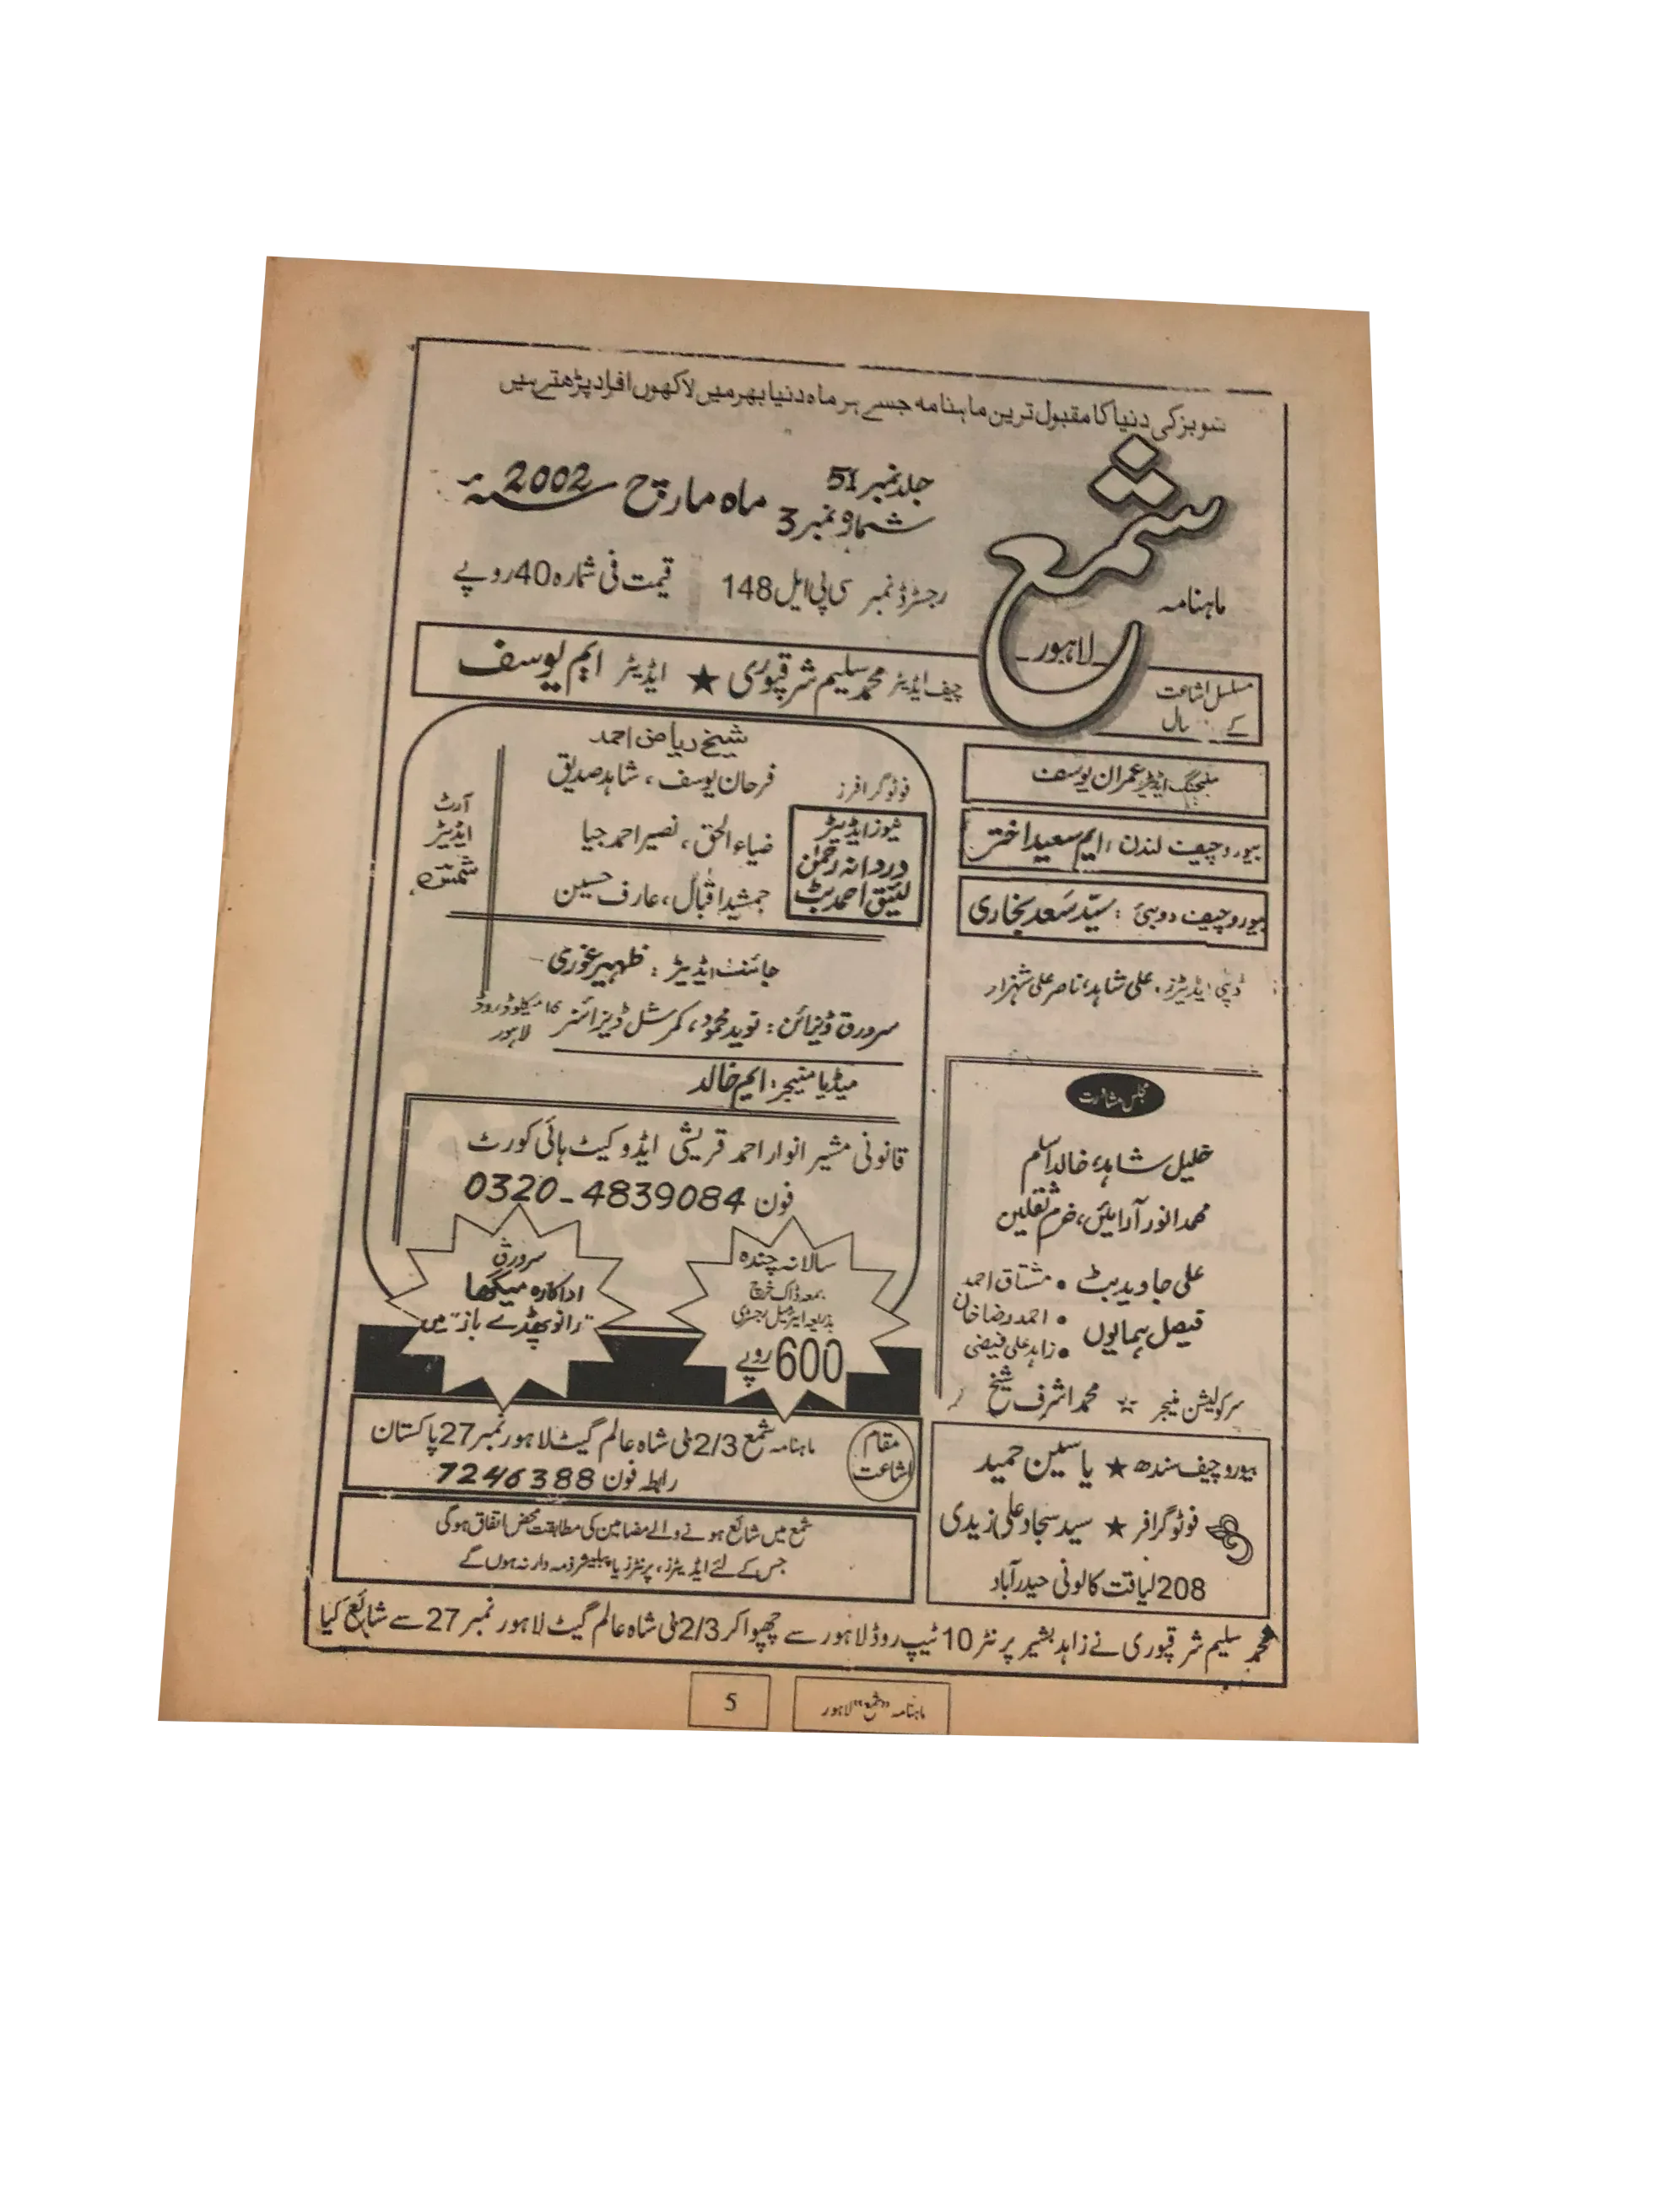 شوبز کی دنیا کا مقبول ترین ماہنامہ جسے ہر ماہ دنیا بھر میں لاکھوں افراد پڑھتے ہیں
ماہنامہ شمع لاہور
جلد نمبر 51
شمارہ نمبر 3
ماہ مارچ 2002ء
رجسٹرڈ نمبر سی پی ایل 148
قیمت فی شمارہ 40 روپے
مسلسل اشاعت
کے سال
چیف ایڈیٹر محمد سلیم شرقپوری ★ ایڈیٹر ایم یوسف
منیجنگ ایڈیٹر عمران یوسف
بیورو چیف لندن : ایم سعید اختر
بیورو چیف دوبئی : سیّد سَعد بخاری
ڈپٹی ایڈیٹرز : علی شاہد، ناصر علی شہزاد
مجلس مشاورت
خلیل شاہد، خالد اسلم
محمد انور آرائیں، خرم ثقلین
علی جاوید بٹ • مشتاق احمد
فیصل ہمایوں • احمد رضا خان
• زاہد علی فیضی
سرکولیشن منیجر ☆ محمد اشرف شیخ
بیورو چیف سندھ ★ یاسین حمید
فوٹوگرافر ★ سید سجاد علی زیدی
208 لیاقت کالونی حیدرآباد
شیخ ریاض احمد
فوٹوگرافرز فرحان یوسف، شاہد صدیق
ضیاء الحق، نصیر احمد جیا
جمشید اقبال، عارف حسین
نیوز ایڈیٹر
دردانہ رحمٰن
لئیق احمد بٹ
آرٹ
ایڈیٹر
جائنٹ ایڈیٹر : ظہیر غوری
سرورق ڈیزائن : نوید محمود، کمرشل ڈیزائنر 16 میکلوڈ روڈ لاہور
میڈیا منیجر : ایم خالد
قانونی مشیر انوار احمد قریشی ایڈوکیٹ ہائی کورٹ
فون 0320-4839084
سالانہ چندہ
بمعہ ڈاک خرچ
بذریعہ ایئر میل رجسٹری
600 روپے
سرورق
اداکارہ میگھا
"رانو پھڈے باز" میں
مقام اشاعت
ماہنامہ شمع 2/3 ٹی شاہ عالم گیٹ لاہور نمبر 27 پاکستان
رابطہ فون 7246388
شمع میں شائع ہونے والے مضامین کی مطابقت محض اتفاق ہوگی
جس کے لئے ایڈیٹرز، پرنٹرز یا پبلیشر ذمہ دار نہ ہوں گے
محمد سلیم شرقپوری نے زاہد بشیر پرنٹر 10 ٹیپ روڈ لاہور سے چھپوا کر 2/3 ٹی شاہ عالم گیٹ لاہور نمبر 27 سے شائع کیا
ماہنامہ "شمع" لاہور
5